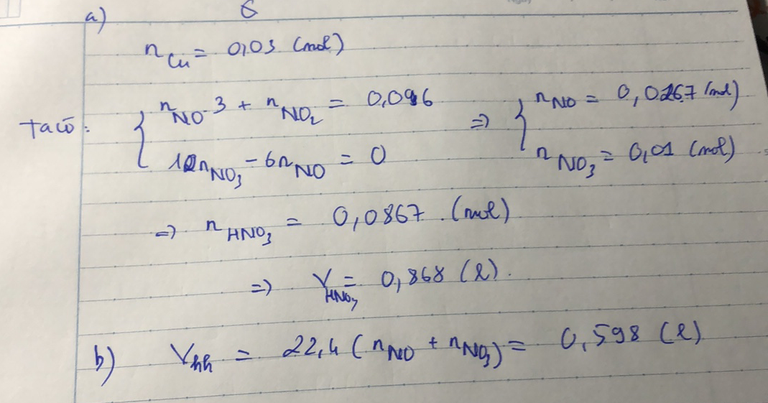 a)
n Cu = 0,03 (mol)
Ta có: { n NO · 3 + n NO2 = 0,096 => { n NO = 0,0267 (mol)
12n NO3 - 6n NO = 0 n NO3 = 0,01 (mol)
=> n HNO3 = 0,0867 (mol)
=> V HNO3 = 0,868 (l).
b) Vhh = 22,4 (n NO + n NO3) = 0,598 (l)